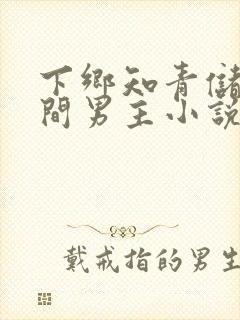 下鄉知青儲
間男主小說
戴戒指的男生